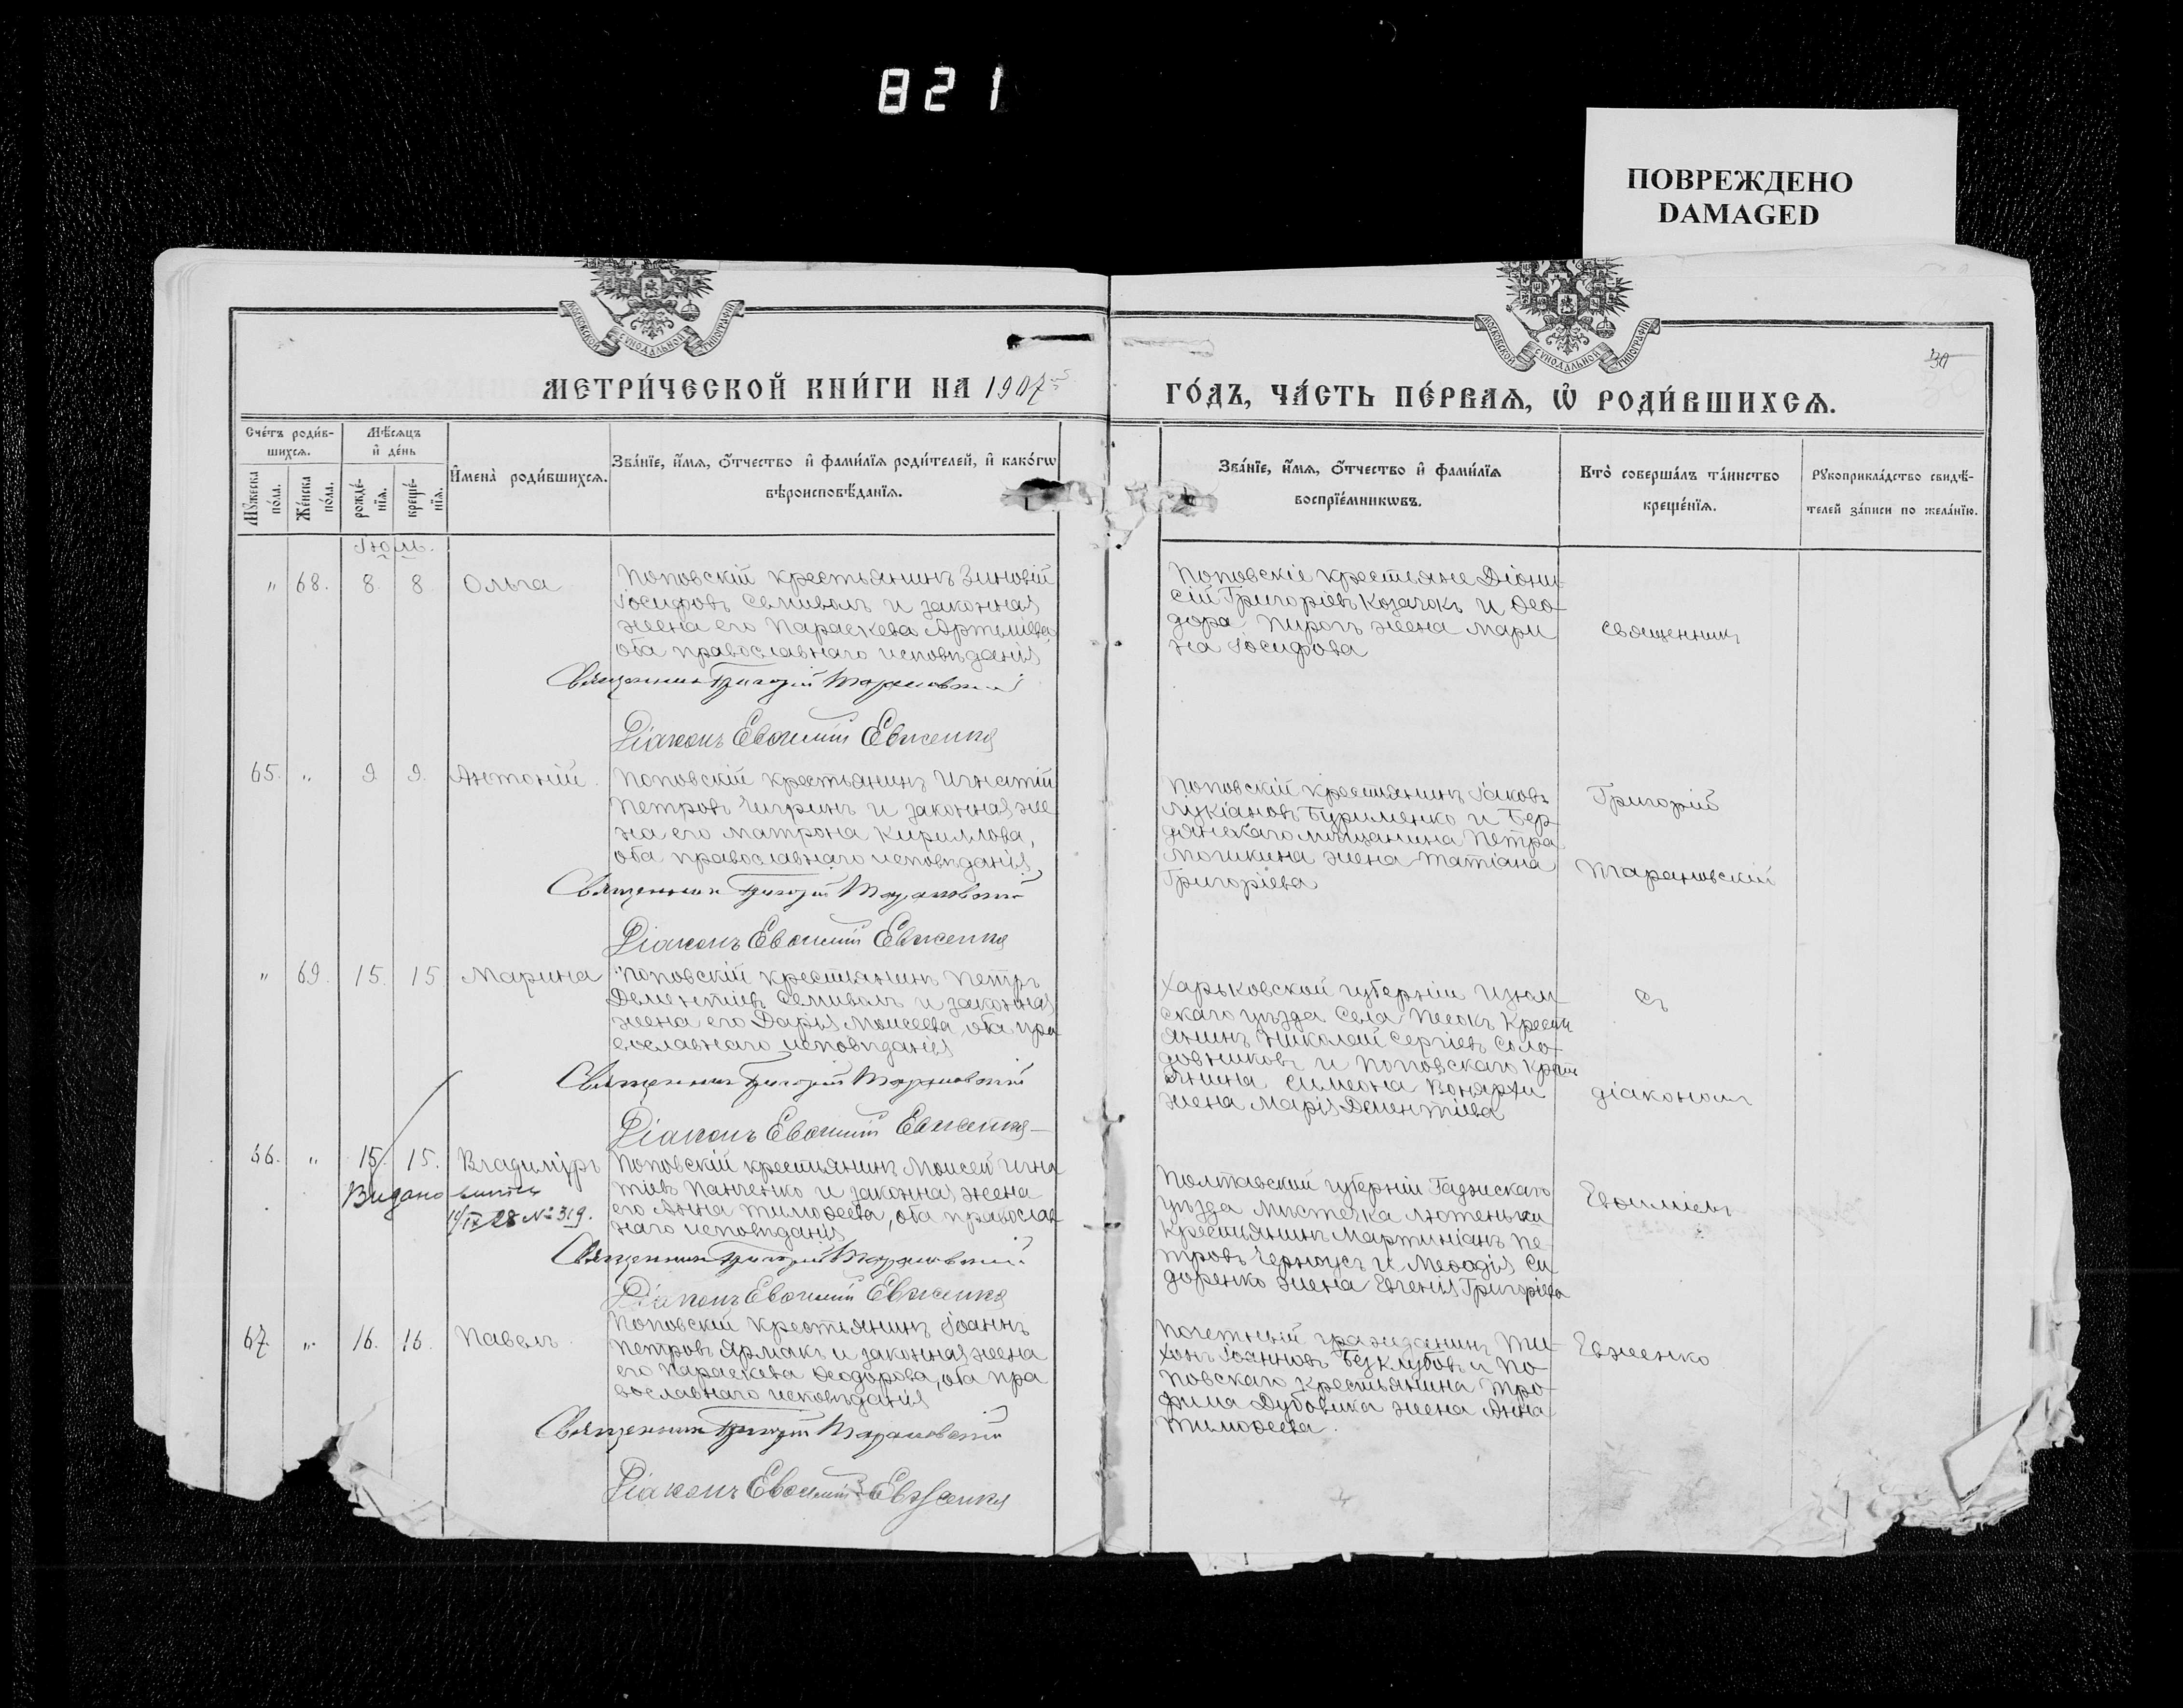 821
ПОВРЕЖДЕНО
DAMAGED
МОСКОВСКОЙ СѴНОДАЛЬНОЙ ТИПОГРАФІИ
МОСКОВСКОЙ СѴНОДАЛЬНОЙ ТИПОГРАФІИ
30
МЕТРИ́ЧЕСКОЙ КНИ́ГИ НА 1907
ГО́ДЪ, ЧА́СТЬ ПЕ́РВАѦ, Ѡ҆ РОДИ́ВШИХСѦ.
Сче́тъ роди́в-
шихсѧ.
Мꙋ́жеска по́ла.
Же́нска по́ла.
Мѣ́сѧцъ
и҆ де́нь
рожде́-
нїѧ.
креще́-
нїѧ.
И҆мена̀ роди́вшихсѧ.
Зва́нїе, и҆́мѧ, ѻ҆́тчество и҆ фами́лїѧ роди́телей, и҆ како́гѡ
вѣроисповѣ́данїѧ.
Зва́нїе, и҆́мѧ, ѻ҆́тчество и҆ фами́лїѧ
воспрїе́мникѡвъ.
Кто̀ соверша́лъ та́инство
креще́нїѧ.
Рꙋкоприкла́дство свидѣ́-
телей за́писи по жела́нїю.
Іюль.
" 68. 8. 8 Ольга
Поповскій крестьянинъ Зиновій
Іосифовъ Семиволъ и законная
жена его Параскева Артемиева,
оба православнаго исповѣданія
Священникъ Григорій Тарановскій
Діаконъ Евѳимій Евженко
Поповскіе крестьяне Діони-
сій Григоріевъ Козачокъ и Ѳео-
дора Пирогъ жена Мари
на Іосифова
Священникъ
65. " 9. 9. Антоній.
Поповскій крестьянинъ Игнатій
Петровъ Чигринъ и законная же
на его Матрона Кириллова,
оба православнаго исповѣданія
Священникъ Григорій Тарановскій
Діаконъ Евѳимій Евженко
Поповскій крестьянинъ Іаковъ
Лукіановъ Бурименко и Бер-
дянскаго мѣщанина Петра
Мошкина жена Татіана
Григоріева
Григорій
Тарановскій
" 69. 15. 15 Марина
Поповскій крестьянинъ Петръ
Дементіевъ Семиволъ и законная
жена его Дарія Моисеева, оба пра
вославнаго исповѣданія
Священникъ Григорій Тарановскій
Діаконъ Евѳимій Евженко
Харьковской губерніи Изюм-
скаго уѣзда села Песокъ крест
янинъ Николай Сергіевъ Соло-
довниковъ и Поповскаго крест
янина Симеона Вонярхи
жена Марія Дементіева
съ
діакономъ
66. " 15. 15. Владиміръ
Видано
14/IX 28 № 319.
Поповскій крестьянинъ Моисей Игна
тіевъ Панченко и законная жена
его Анна Тимоѳеева, оба православ
наго исповѣданія
Священникъ Григорій Тарановскій
Діаконъ Евѳимій Евженко
Полтавской губерніи Гадяскаго
уѣзда мѣстечка Лютеньки
крестьянинъ Мартиніанъ Пе-
тровъ Черноусъ и Меѳодія Си
доренко жена Евгенія Григоріева
Евѳиміемъ
67. " 16. 16. Павелъ
Поповскій крестьянинъ Іоаннъ
Петровъ Ярмакъ и законная жена
его Параскева Ѳеодорова, оба пра
вославнаго исповѣданія
Священникъ Григорій Тарановскій
Діаконъ Евѳимій Евженко
Почетный гражданинъ Ти-
хонъ Іоанновъ Безклубовъ и По-
повскаго крестьянина Тро-
фима Дубовика жена Анна
Тимоѳеева.
Евженко